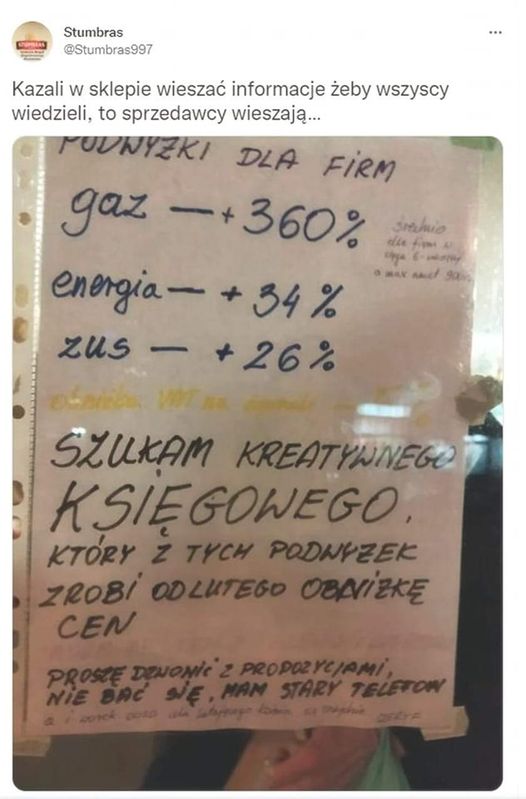 Stumbras
@Stumbras997
Kazali w sklepie wieszać informacje żeby wszyscy
wiedzieli, to sprzedawcy wieszają...
PODWYŻKI DLA FIRM
gaz — + 360%
średnio
dla firm w
energia — + 34%
zus — + 26%
VAT na
SZUKAM KREATYWNEGO
KSIĘGOWEGO,
KTÓRY Z TYCH PODWYŻEK
ZROBI OD LUTEGO OBNIŻKĘ
CEN
PROSZĘ DZWONIĆ Z PROPOZYCJAMI,
NIE BAĆ SIĘ, MAM STARY TELEFON